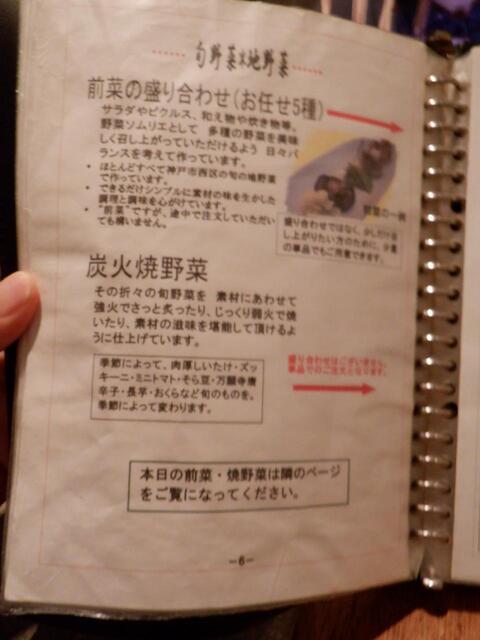 旬野菜×地野菜
前菜の盛り合わせ(お任せ5種)
サラダやピクルス、和え物や炊き物等、
野菜ソムリエとして 多種の野菜を美味
しく召し上がっていただけるよう 日々バ
ランスを考えて作っています。
・ ほとんどすべて神戸市西区の旬の地野菜
で作っています。
・ できるだけシンプルに素材の味を生かした
調理と調味を心がけています。
・ "前菜"ですが、途中で注文していただい
ても構いません。
前菜の一例
盛り合わせではなく、少しだけ召
し上がりたい方のために、少量
の単品でもご用意できます。
炭火焼野菜
その折々の旬野菜を 素材にあわせて
強火でさっと炙ったり、じっくり弱火で焼
いたり、素材の滋味を堪能して頂けるよ
うに仕上げています。
季節によって、肉厚しいたけ・ズッ
キーニ・ミニトマト・そら豆・万願寺唐
辛子・長芋・おくらなど旬のものを。
季節によって変わります。
盛り合わせはございません。
単品でのご注文となります。
本日の前菜・焼野菜は隣のページ
をご覧になってください。
-6-